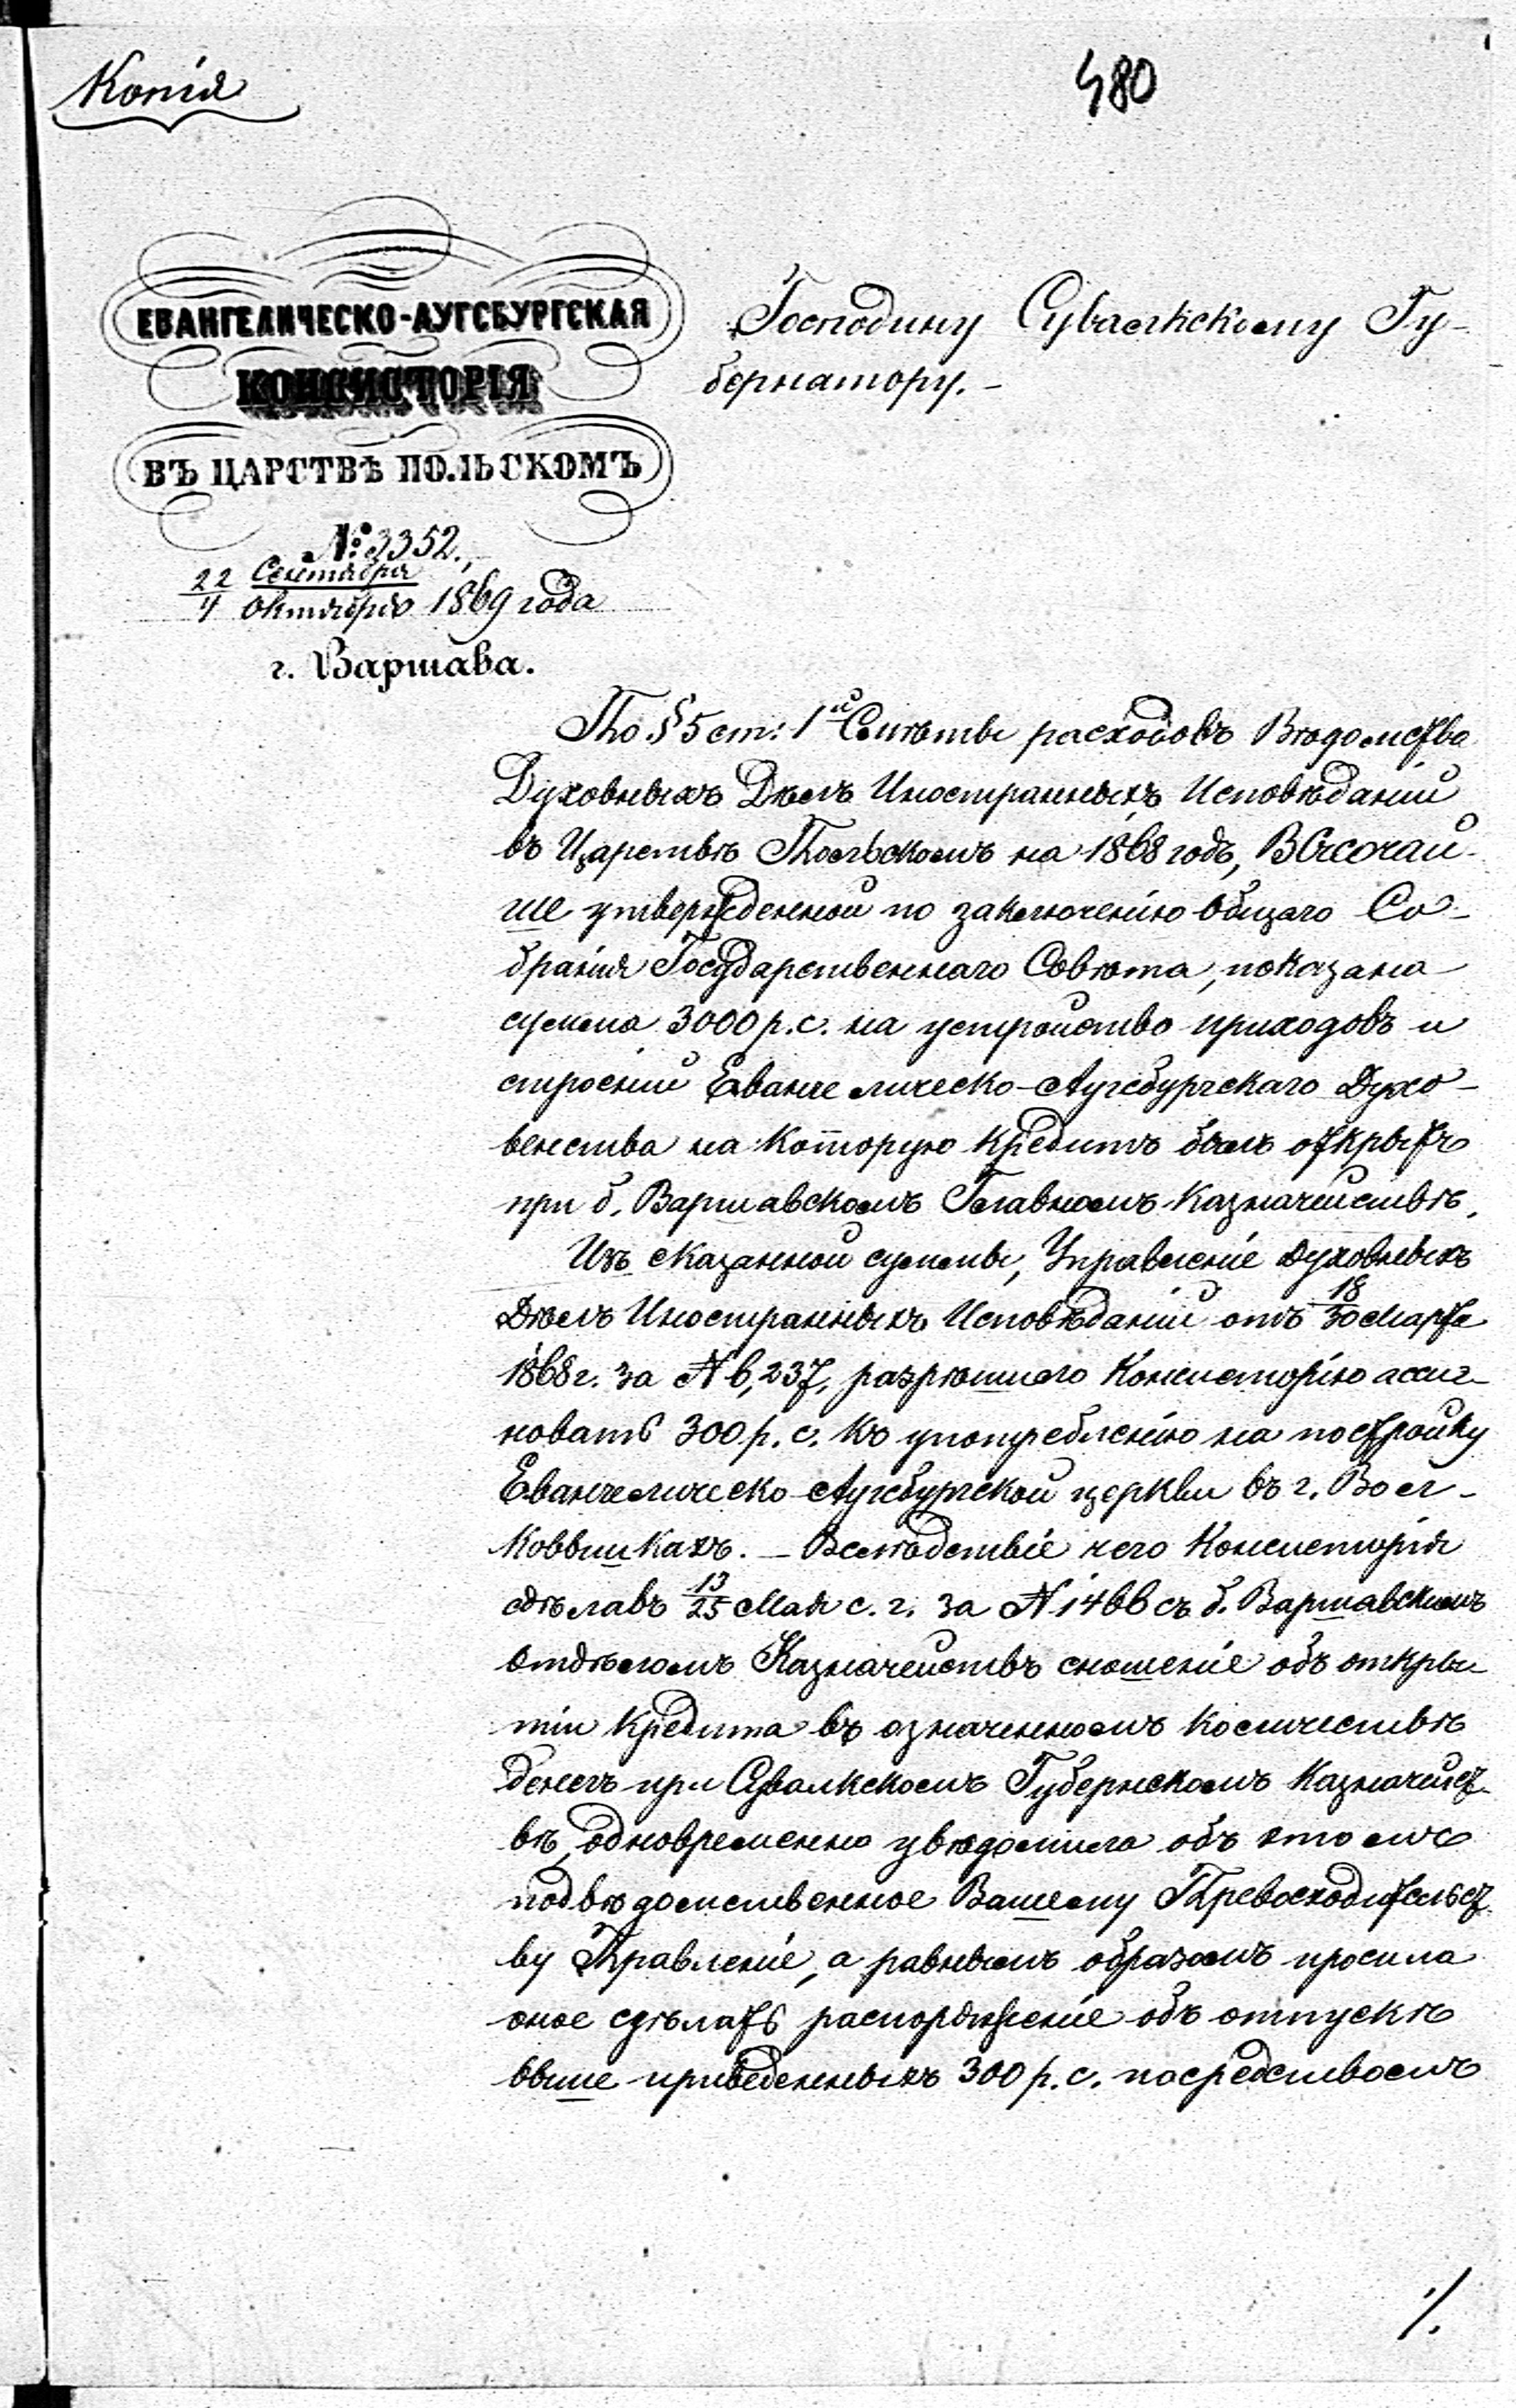 Копія
480
ЕВАНГЕЛИЧЕСКО-АУГСБУРГСКАЯ
КОНСИСТОРІЯ
ВЪ ЦАРСТВѢ ПОЛЬСКОМЪ
№ 3352.
22 Сентября
4 Октября 1869 года
г. Варшава.
Господину Сувалкскому Гу-
бернатору.-
По § 5 ст: 1й Смѣты расходовъ Вѣдомства
Духовныхъ Дѣлъ Иностранныхъ Исповѣданій
въ Царствѣ Польскомъ на 1868 годъ, ВЫсочай-
ше утвержденной по заключенію Общаго Со-
бранія Государственнаго Совѣта, показана
сумма 3000 р. с. на устройство приходовъ и
строеній Евангелическо-Аугсбургскаго Духо-
венства на которую кредитъ былъ открытъ
при б. Варшавскомъ Главномъ Казначействѣ.
Изъ сказанной суммы, Управленіе Духовныхъ
Дѣлъ Иностранныхъ Исповѣданій отъ 18/30 Марта
1868 г. за № 6,237, разрѣшило Консисторію ассиг-
новать 300 р. с. къ употребленію на постройку
Евангелическо-Аугсбургской церкви въ г. Вол-
ковышкахъ. — Вслѣдствіе чего Консисторія
сдѣлавъ 13/25 Мая с. г. за № 1466 съ б. Варшавскимъ
Отдѣломъ Казначействъ сношеніе объ откры-
тіи кредита въ означенномъ количествѣ
денегъ при Сувалкскомъ Губернскомъ Казначейст-
вѣ, одновременно увѣдомила объ этомъ
подвѣдомственное Вашему Превосходительст-
ву Правленіе, а равнымъ образомъ просила
оное сдѣлать распоряженіе объ отпускѣ
выше приведенныхъ 300 р. с. посредствомъ
./.